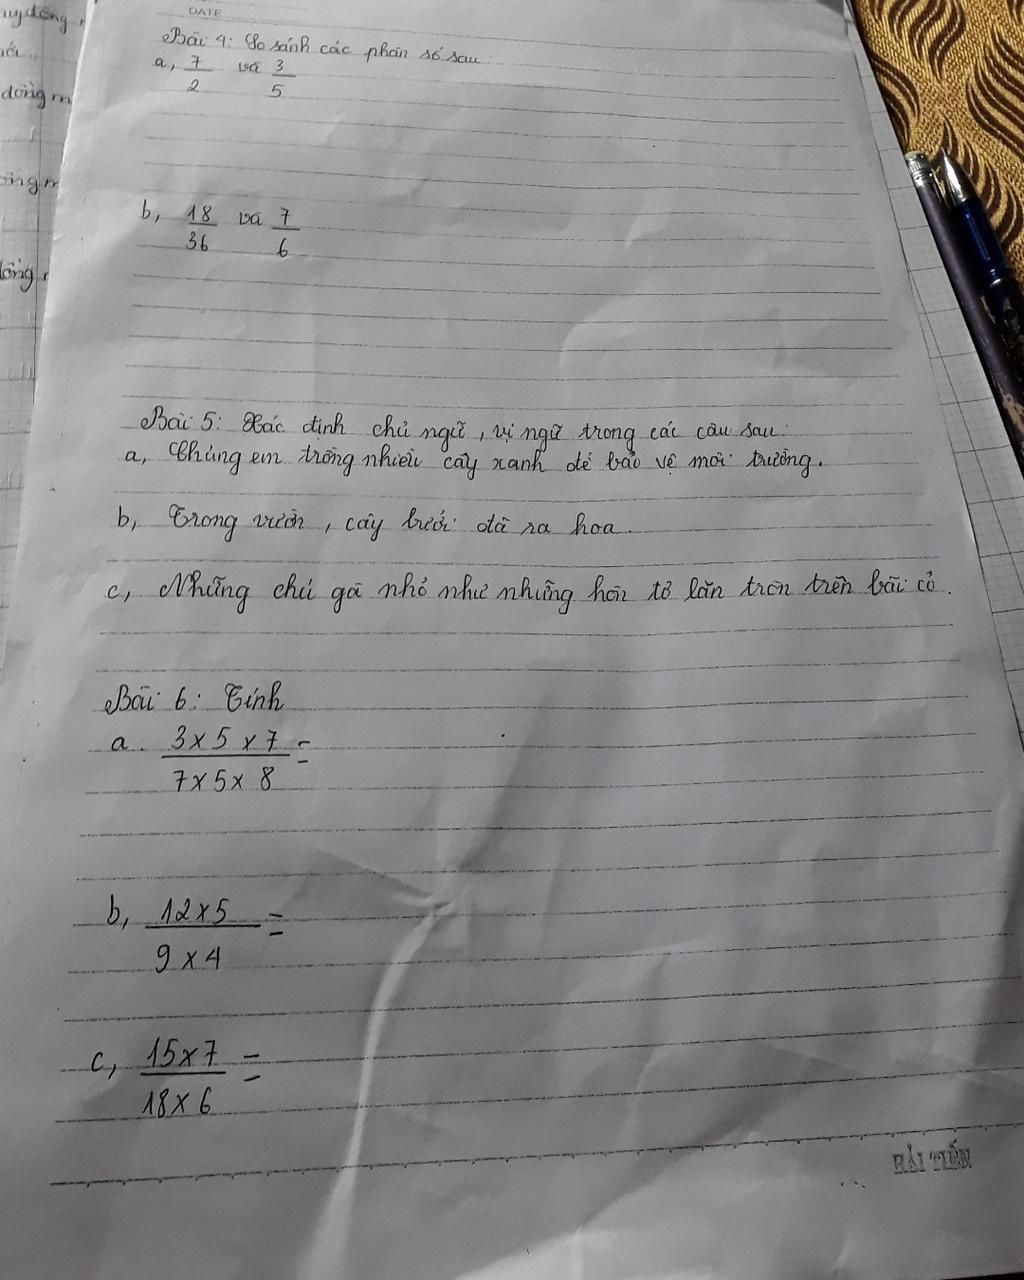 uy đồng
DATE
Bài 4: So sánh các phân số sau:
a, 7/2 và 3/5
đồng m
b, 18/36 và 7/6
Bài 5: Xác định chủ ngữ, vị ngữ trong các câu sau:
a, Chúng em trồng nhiều cây xanh để bảo vệ môi trường.
b, Trong vườn, cây bưởi đã ra hoa.
c, Những chú gà nhỏ như những hòn tơ lăn tròn trên bãi cỏ.
Bài 6: Tính
a. 3 x 5 x 7 =
7 x 5 x 8
b, 12 x 5 =
9 x 4
c, 15 x 7 =
18 x 6
HẢI TIẾN